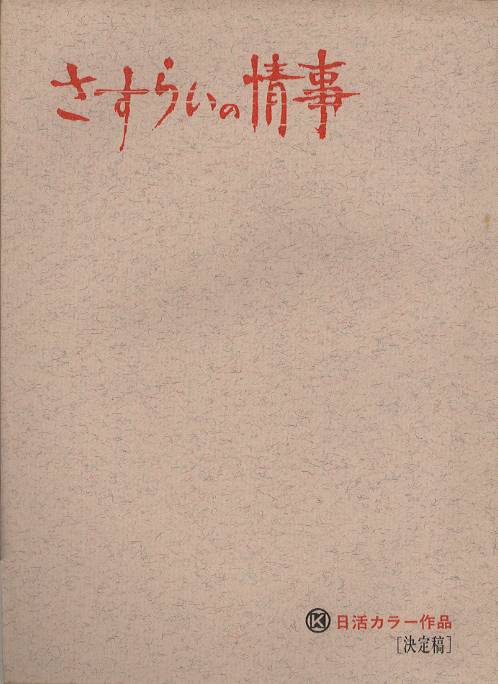 さすらいの情事
日活カラー作品
[決定稿]